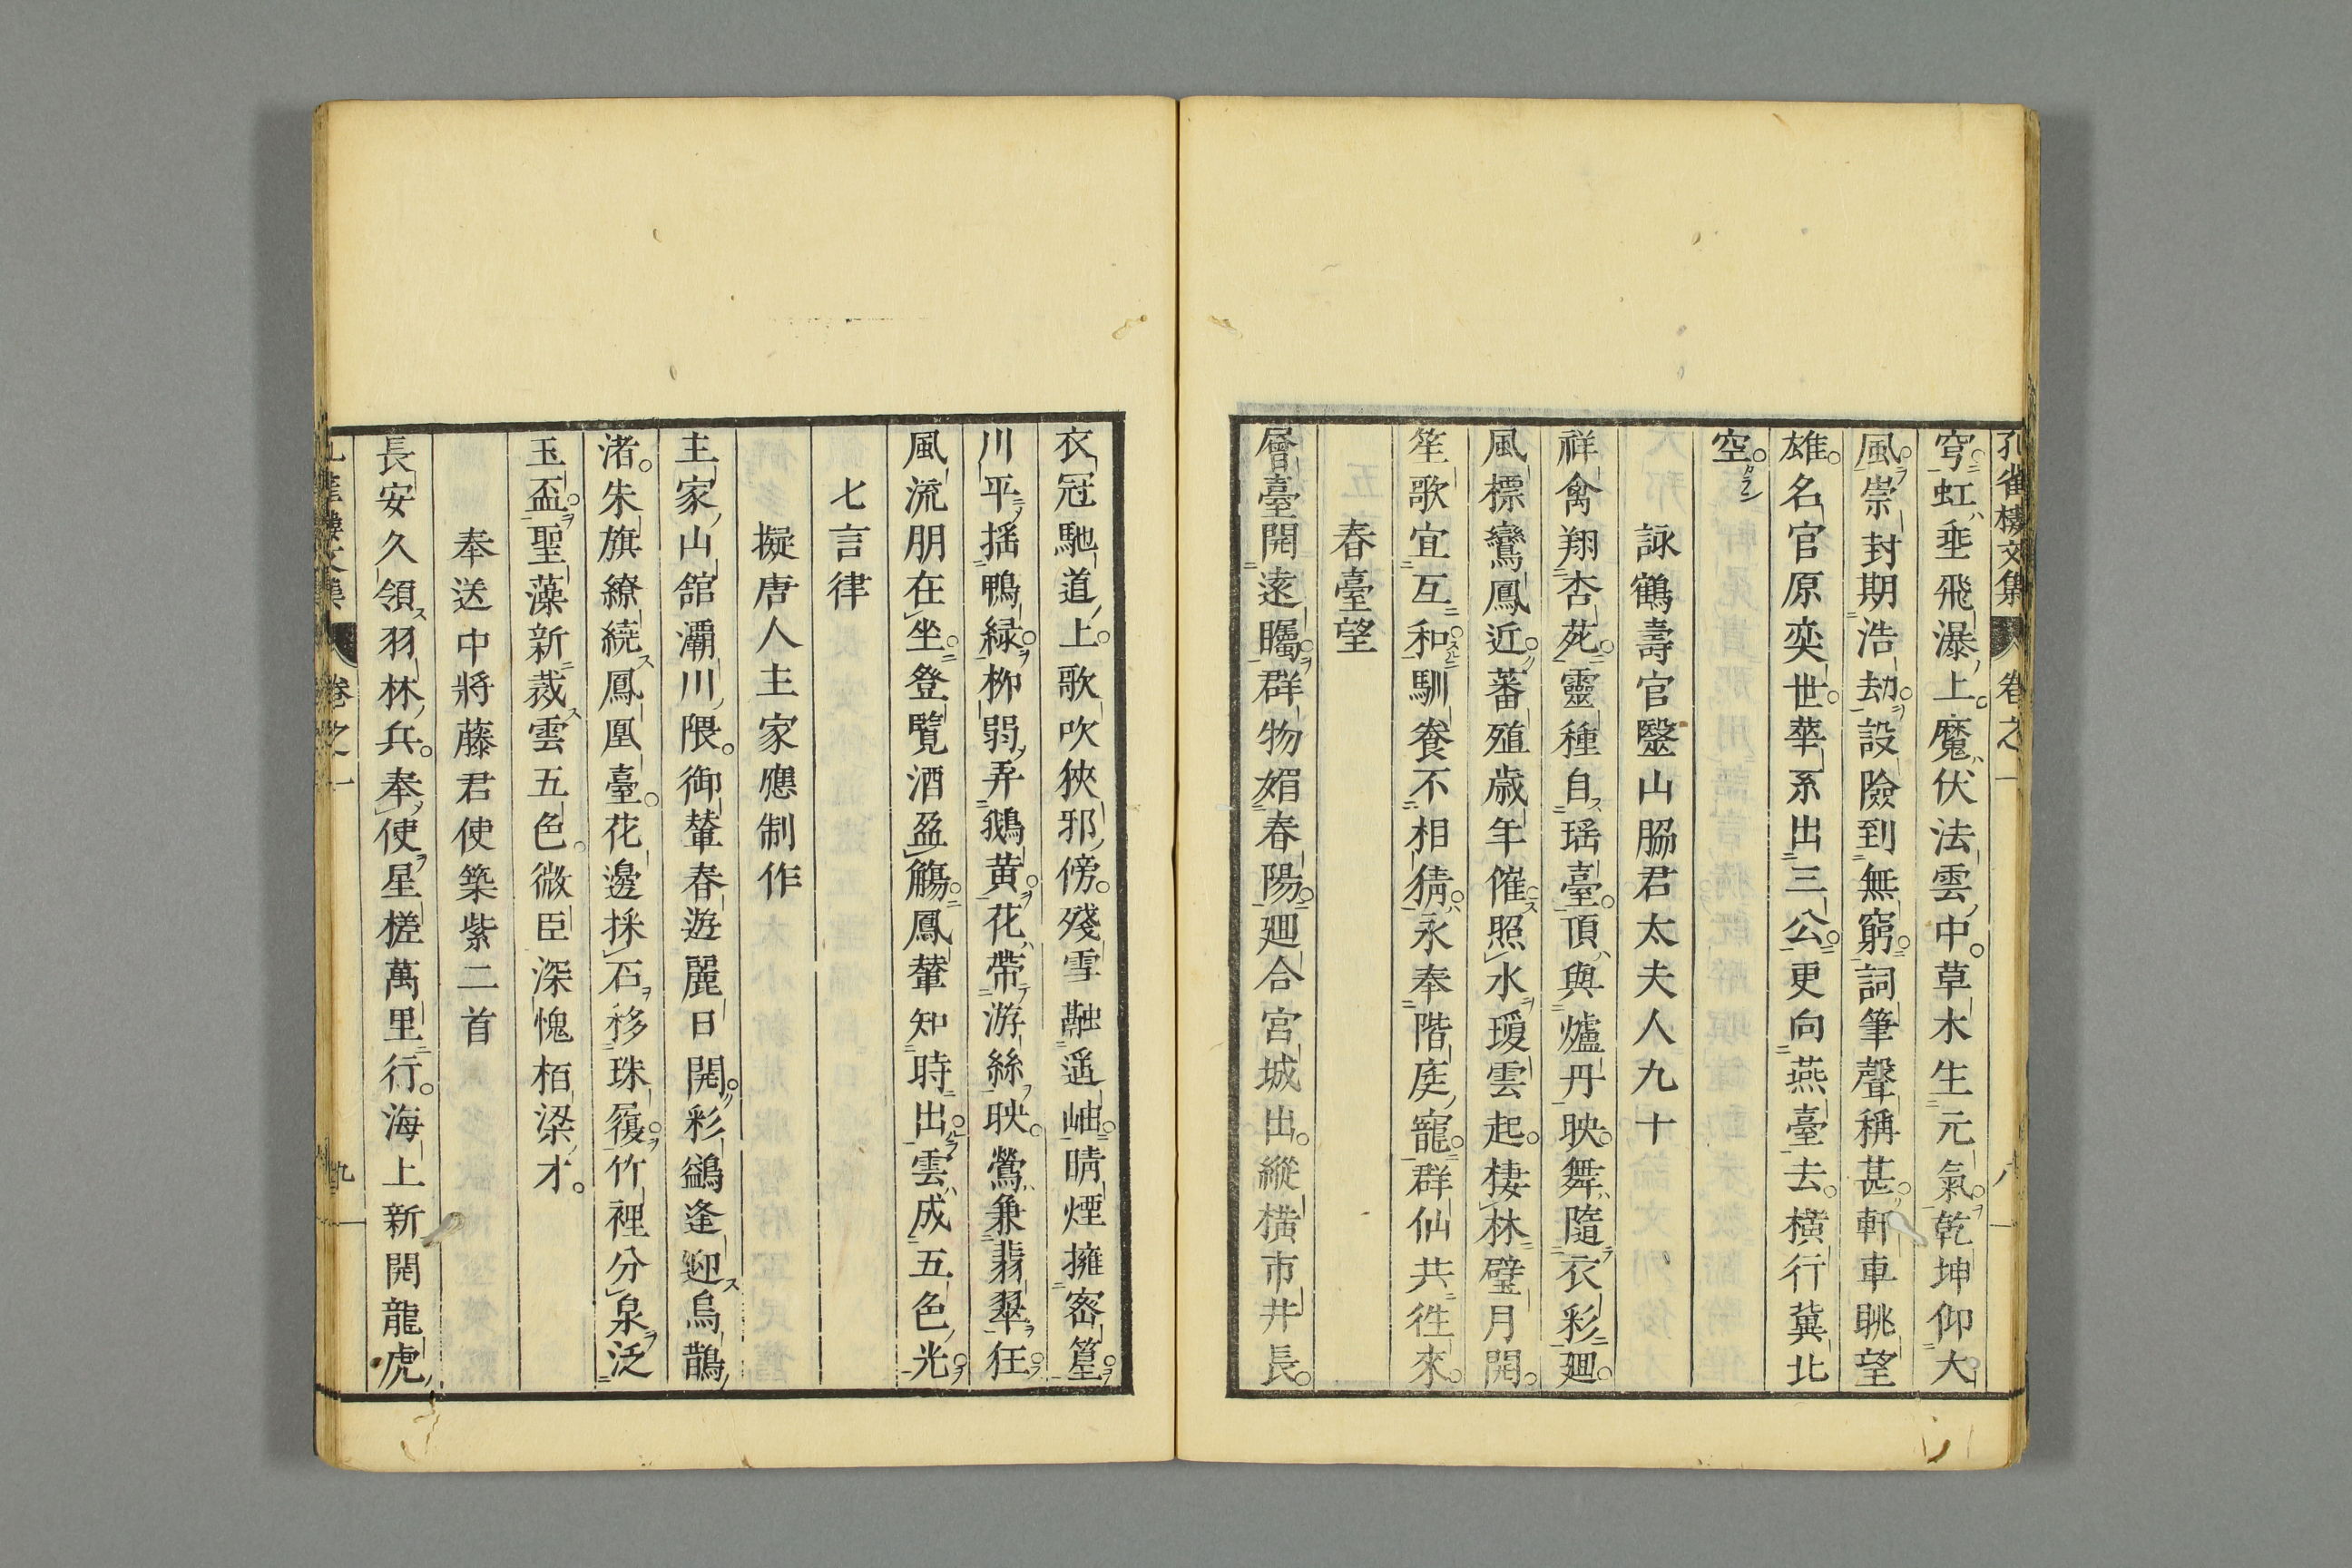 孔雀樓文集 卷之一 八
穹虹垂飛瀑上魔伏法雲中草木生元氣乾坤仰大
風崇封期浩劫設險到無窮詞筆聲稱甚軒車眺望
雄名官原奕世華系出三公更向燕臺去橫行冀北
空
詠鶴壽官醫山脇君太夫人九十
祥禽翔杏苑靈種自瑤臺頂與爐丹映舞隨衣彩廻
風標鸞鳳近蕃殖歲年催照水瑷雲起棲林璧月開
笙歌宜互和馴養不相猜永奉階庭寵群仙共往來
春臺望
層臺開遠矚群物媚春陽廻合宮城出縱橫市井長
衣冠馳道上歌吹狹邪傍殘雪融遙岫晴煙擁密篁
川平搖鴨綠柳弱弄鵝黃花帶游絲映鶯兼翡翠狂
風流朋在坐登覽酒盈觴鳳輦知時出雲成五色光
七言律
擬唐人主家應制作
主家山館灞川隈御輦春遊麗日開彩鷁逢迎烏鵲
渚朱旗繚繞鳳凰臺花邊採石移珠履竹裡分泉泛
玉盃聖藻新裁雲五色微臣深愧栢梁才
奉送中將藤君使築紫二首
長安久領羽林兵奉使星槎萬里行海上新開龍虎
孔雀樓文集 卷之一 九